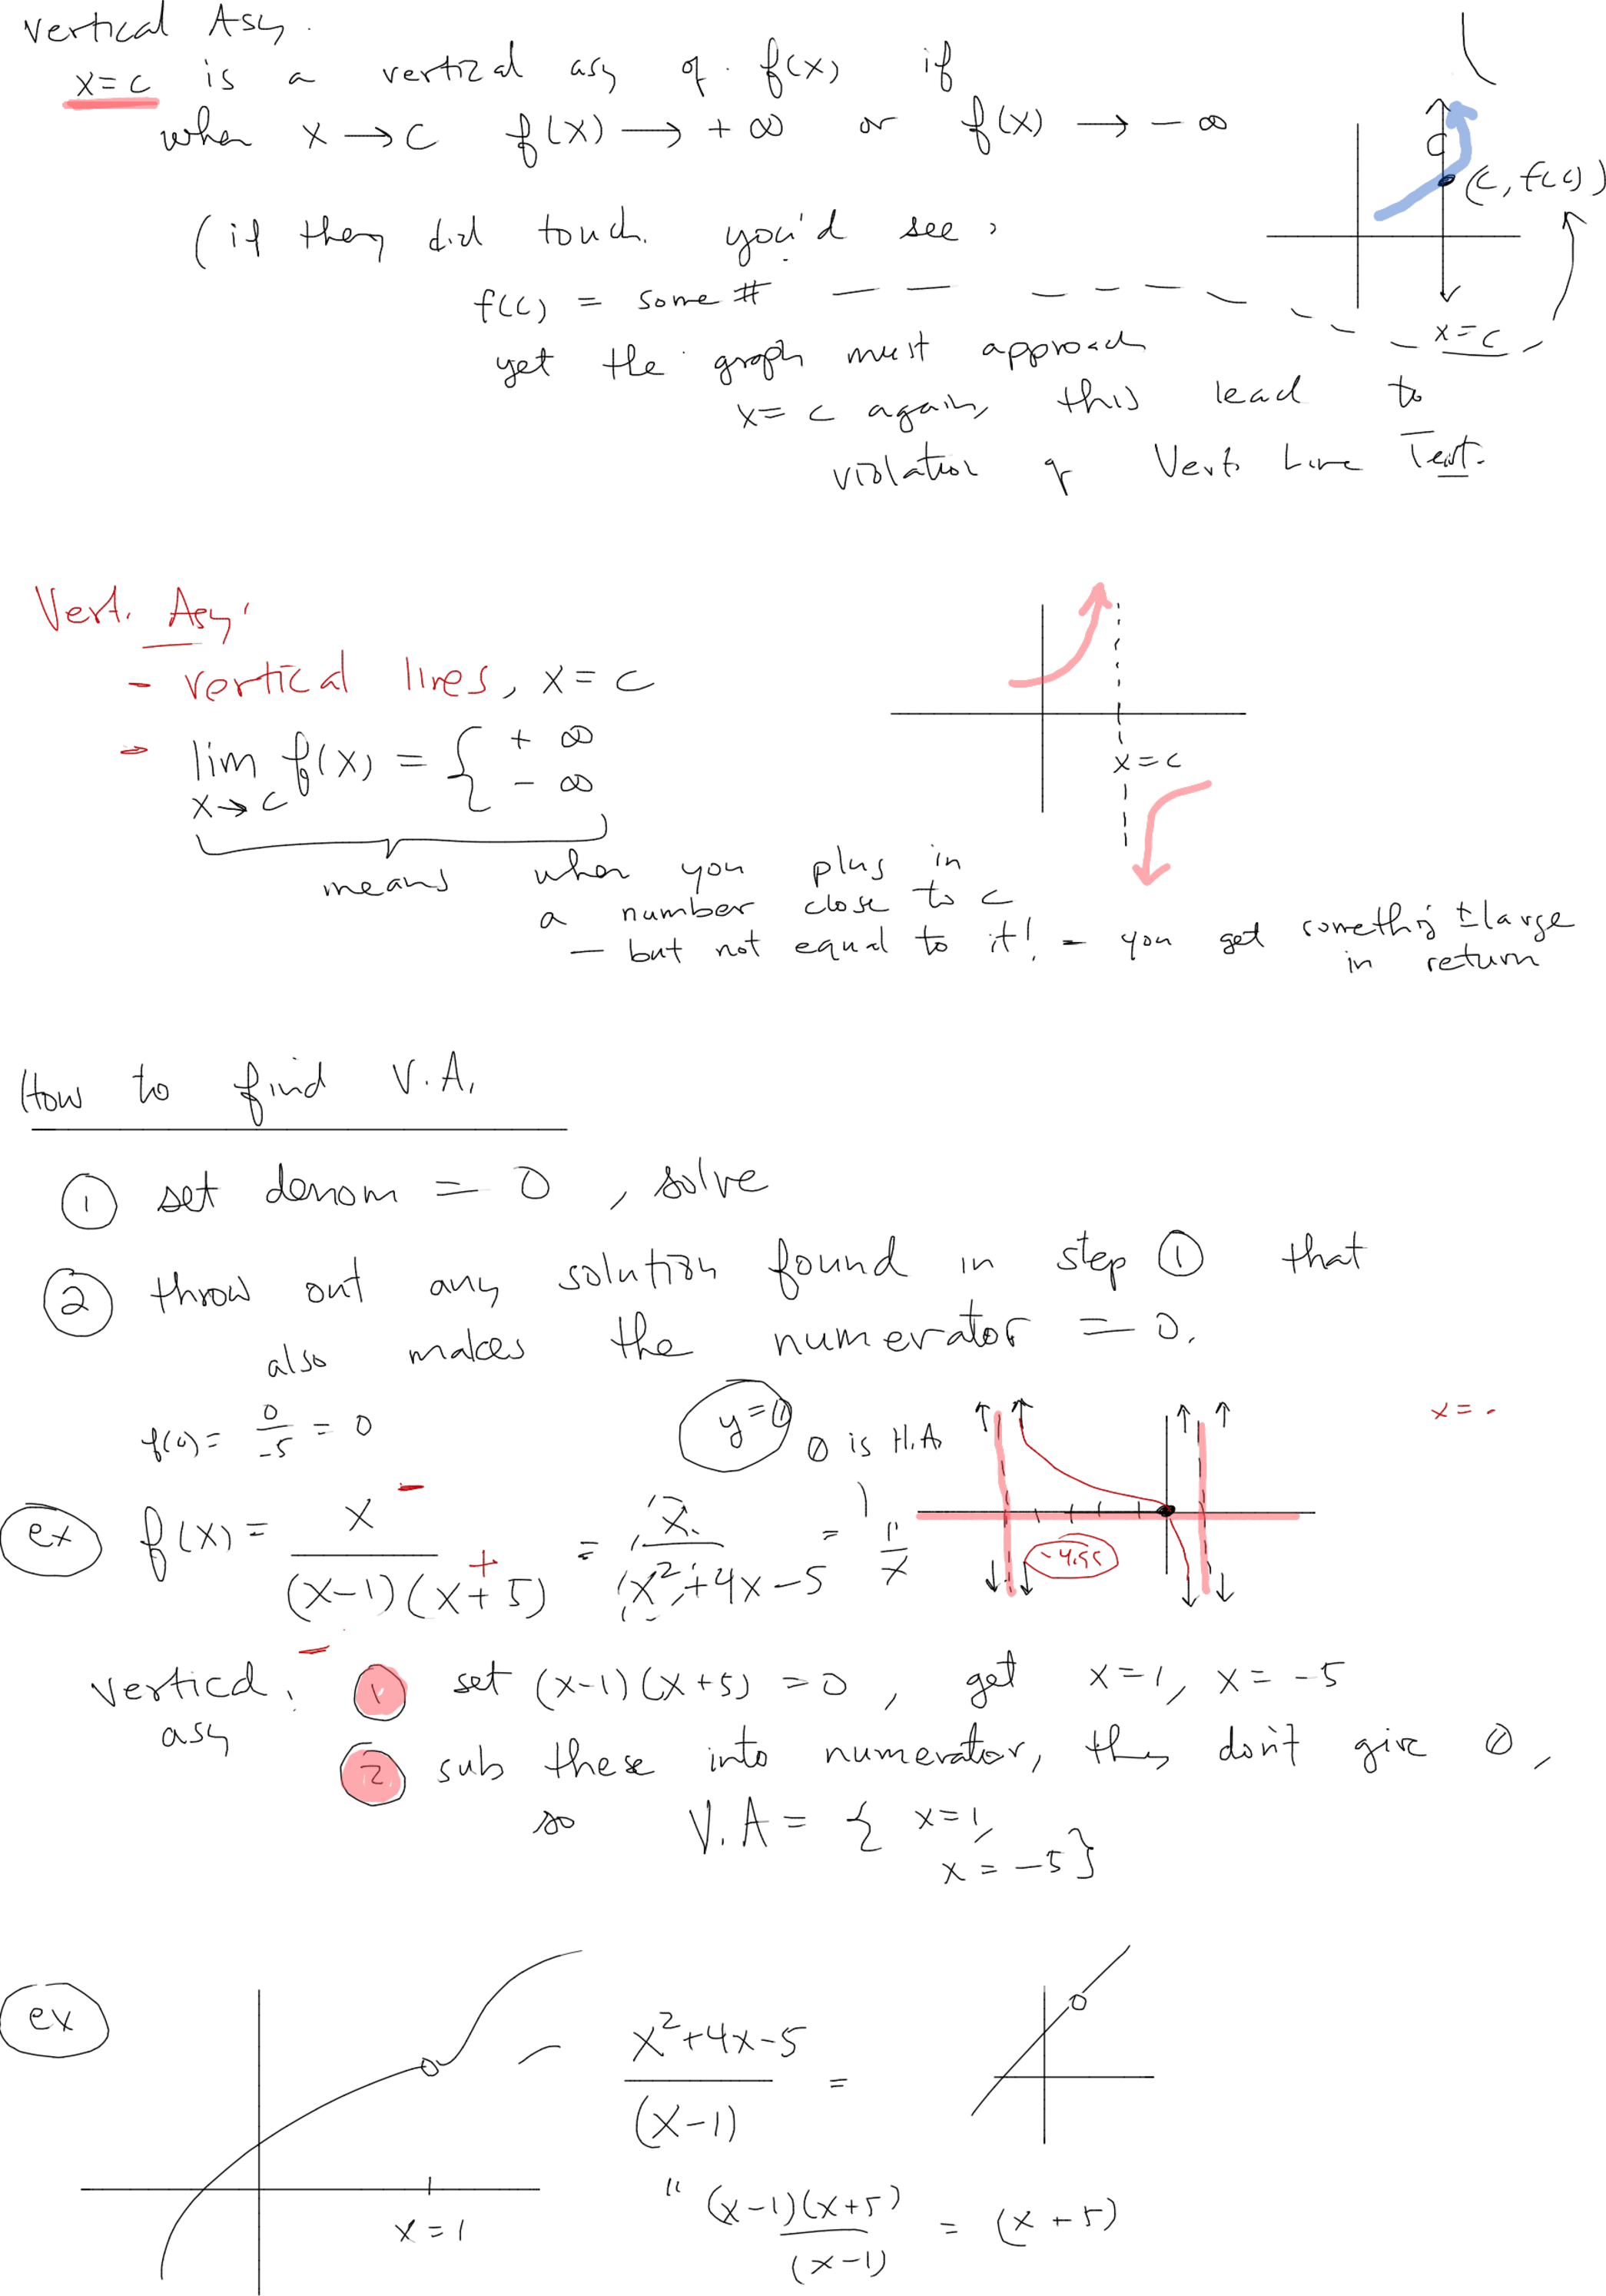 Vertical Asy.
x=c is a vertical asy of f(x) if
when x → c f(x) → + ∞ or f(x) → - ∞
(c, f(c))
(if they did touch you'd see
f(c) = some #
x=c
yet the graph must approach
x=c again, this lead to
violation of Vert. Line Test.
Vert. Asy.
- vertical lines, x = c
- lim f(x) = { + ∞
x→c - ∞
x=c
means when you plug in
a number close to c
- but not equal to it! - you get something ± large
in return
How to find V.A.
① set denom = 0, solve
② throw out any solution found in step ① that
also makes the numerator = 0.
f(0) = 0/-5 = 0
y=0
0 is H.A.
x=.
ex f(x) = x/((x-1)(x+5)) = x/(x²+4x-5) = 1/x
-
+
-
-4.99
vertical asy
① set (x-1)(x+5) = 0, get x=1, x=-5
② sub these into numerator, they don't give 0,
so V.A = { x=1,
x=-5}
ex
x²+4x-5/(x-1) =
x=1
" (x-1)(x+5)/(x-1) = (x+5)